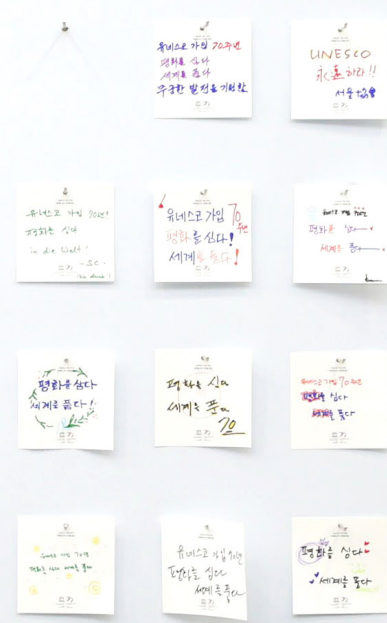 유네스코 가입 70주년
평화를 심다
세계를 품다
무궁한 발전을 기원함
UNESCO
永遠하라!!
서울
유네스코 가입 70년!
평화를 심다
in die Welt!
유네스코 가입 70주년
평화를 심다!
세계를 품다!
평화를
세계를 품다
평화를 심다
세계를 품다!
평화를 심다
세계를 품다
70
유네스코 가입 70주년
평화를 심다
세계를 품다
유네스코 가입 70년
평화를 심다 세계를 품다
유네스코 가입 70년
평화를 심다
세계를 품다
평화를 심다
세계를 품다